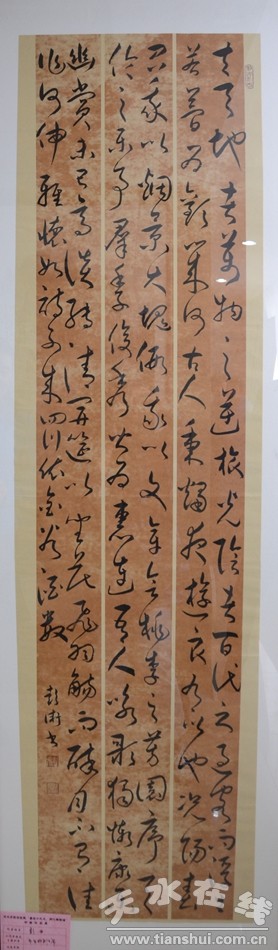 夫天地者萬物之逆旅光陰者百代之過客而浮生
若夢為歡幾何古人秉燭夜遊良有以也況陽春
召我以煙景大塊假我以文章會桃李之芳園序天
倫之樂事羣季俊秀皆為惠連吾人詠歌獨慚康樂
幽賞未已高談轉清開瓊筵以坐花飛羽觴而醉月不有佳
作何伸雅懷如詩不成罰依金谷酒數
天水在线
www.tianshui.com.cn